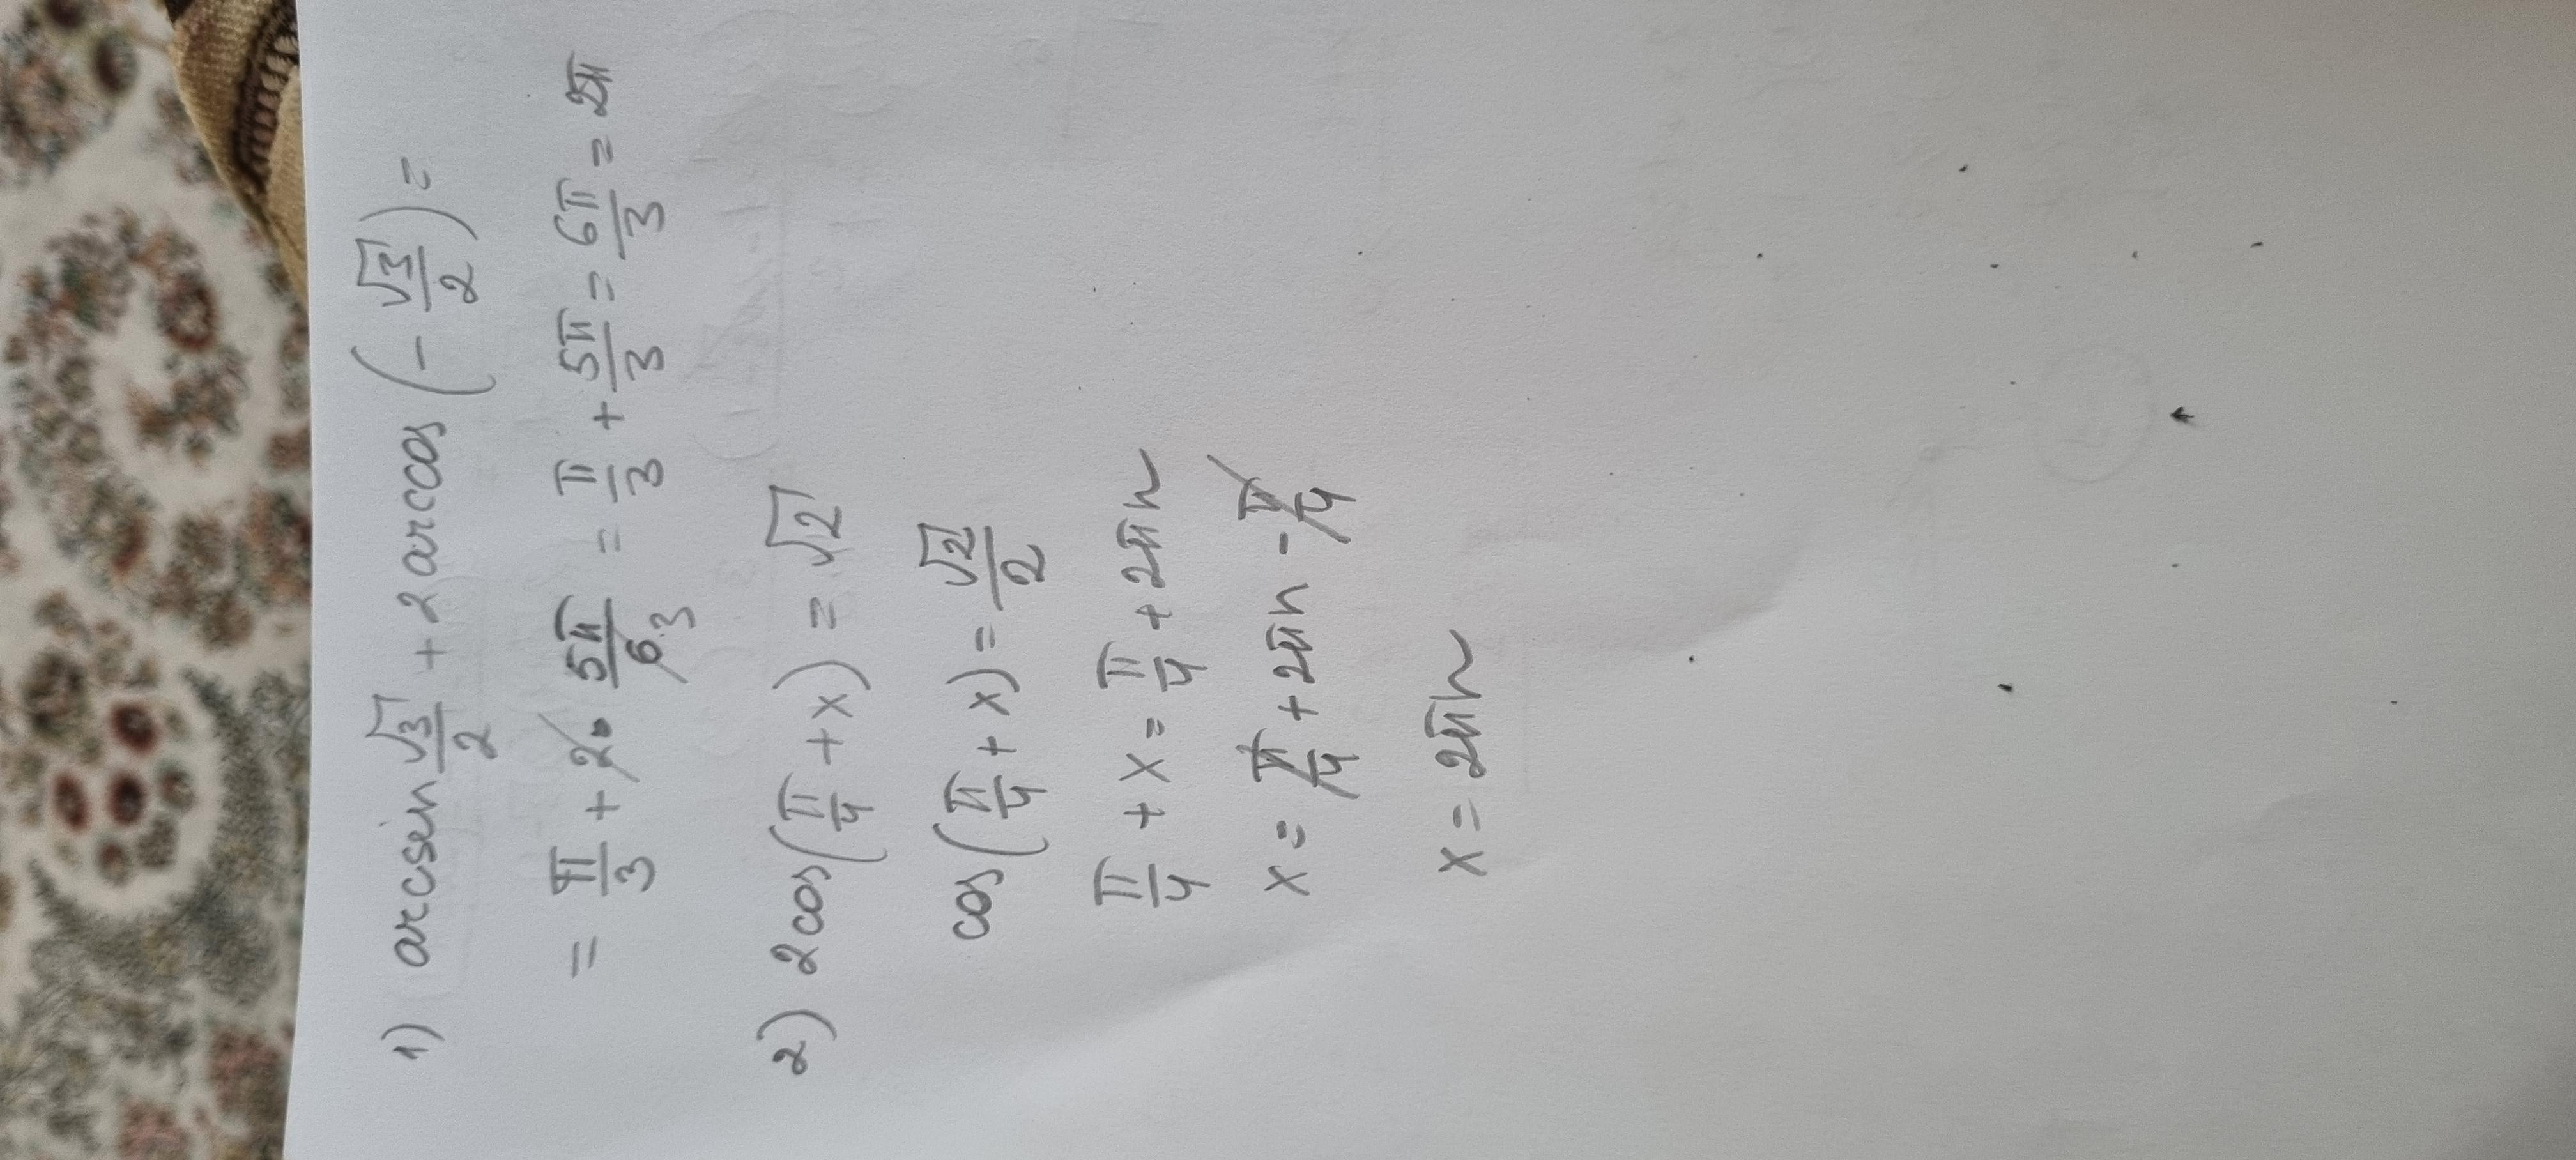 1) arcsin √3/2 + 2 arccos (- √3/2) =
= π/3 + 2 · 5π/6 3 = π/3 + 5π/3 = 6π/3 = 2π
2) 2cos(π/4 + x) = √2
cos(π/4 + x) = √2/2
π/4 + x = π/4 + 2πn
x = π/4 + 2πn - π/4
x = 2πn